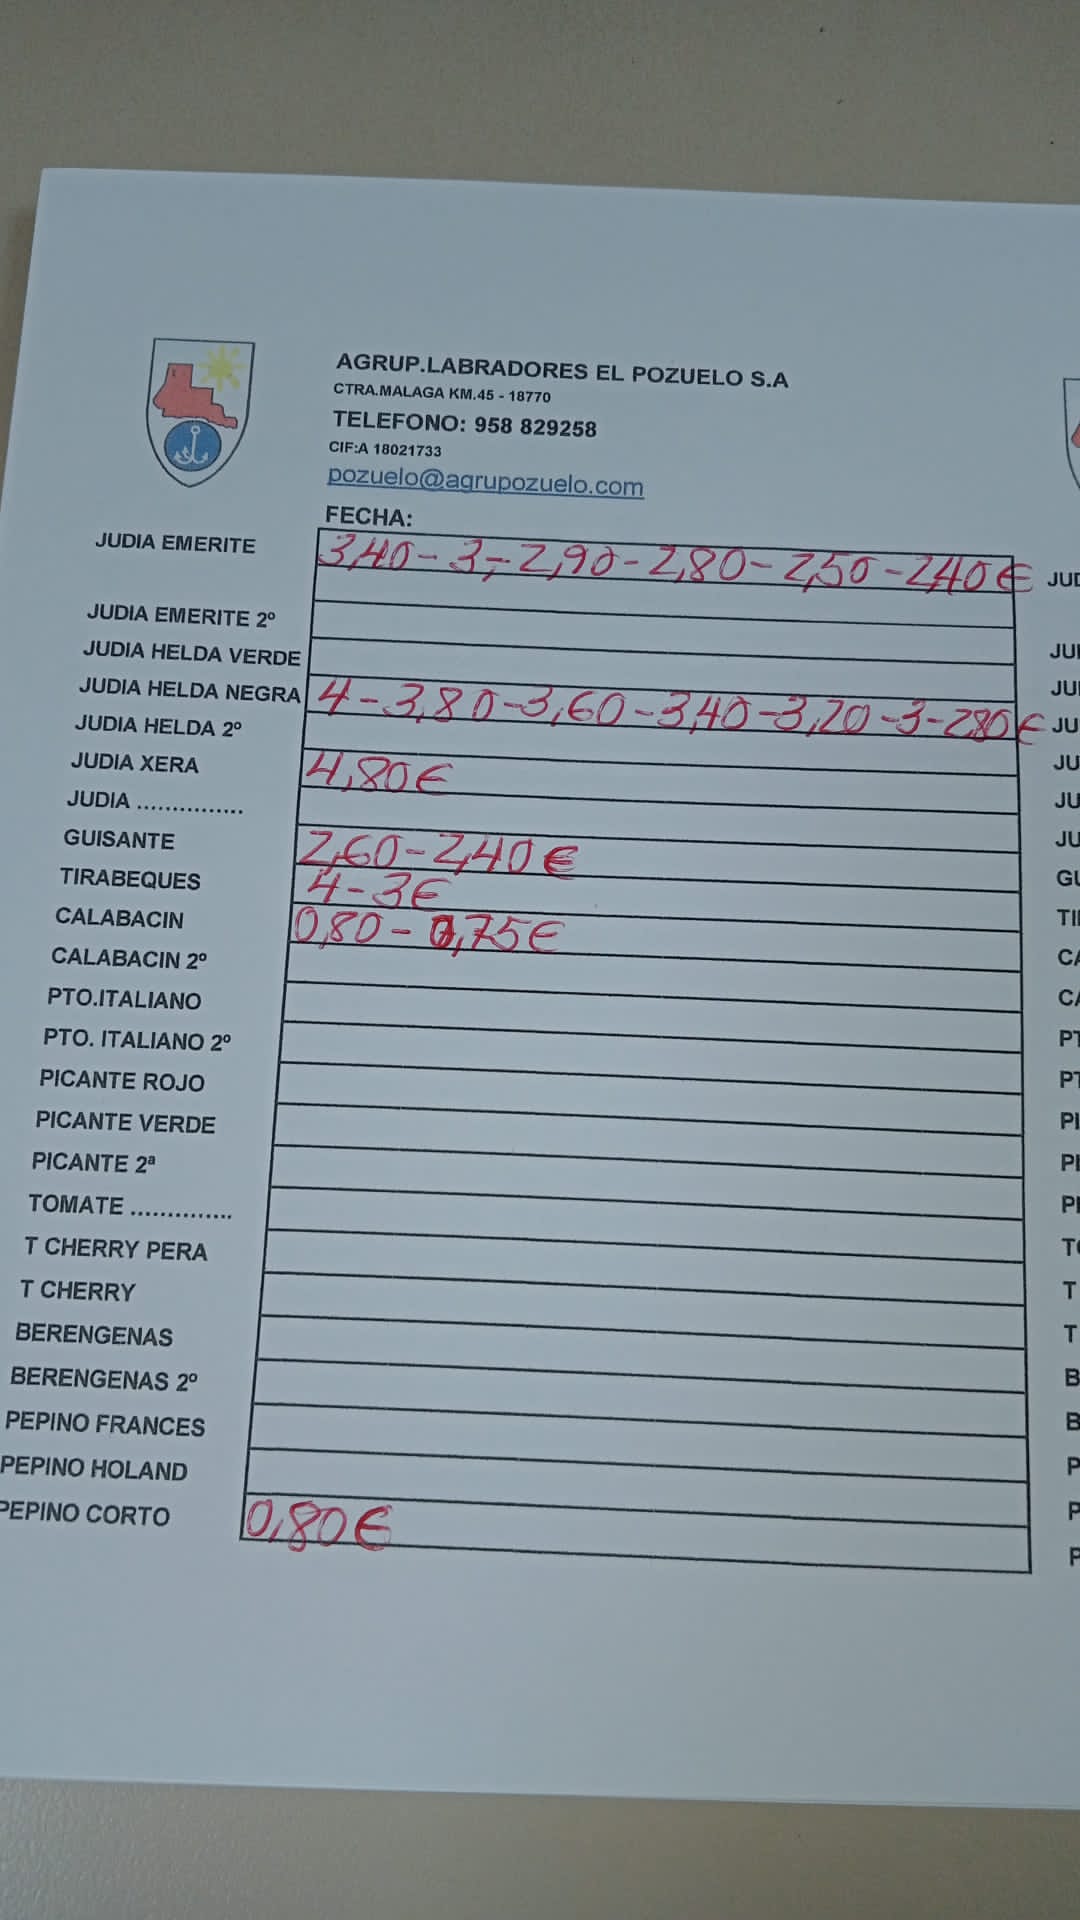 AGRUP.LABRADORES EL POZUELO S.A
CTRA.MALAGA KM.45 - 18770
TELEFONO: 958 829258
CIF:A 18021733
pozuelo@agrupozuelo.com
FECHA:
JUDIA EMERITE 3,40 - 3,- - 2,90 - 2,80 - 2,50 - 2,40 € JUD
JUDIA EMERITE 2º JUI
JUDIA HELDA VERDE JUI
JUDIA HELDA NEGRA 4 - 3,80 - 3,60 - 3,40 - 3,20 - 3 - 2,80 € JU
JUDIA HELDA 2º JU
JUDIA XERA 4,80 € JU
JUDIA ............... JU
GUISANTE 2,60 - 2,40 € GU
TIRABEQUES 4 - 3 € TI
CALABACIN 0,80 - 0,75 € CA
CALABACIN 2º CA
PTO.ITALIANO PT
PTO. ITALIANO 2º PT
PICANTE ROJO PI
PICANTE VERDE PI
PICANTE 2ª PI
TOMATE .............. TO
T CHERRY PERA T
T CHERRY T
BERENGENAS B
BERENGENAS 2º B
PEPINO FRANCES P
PEPINO HOLAND P
PEPINO CORTO 0,80 € P